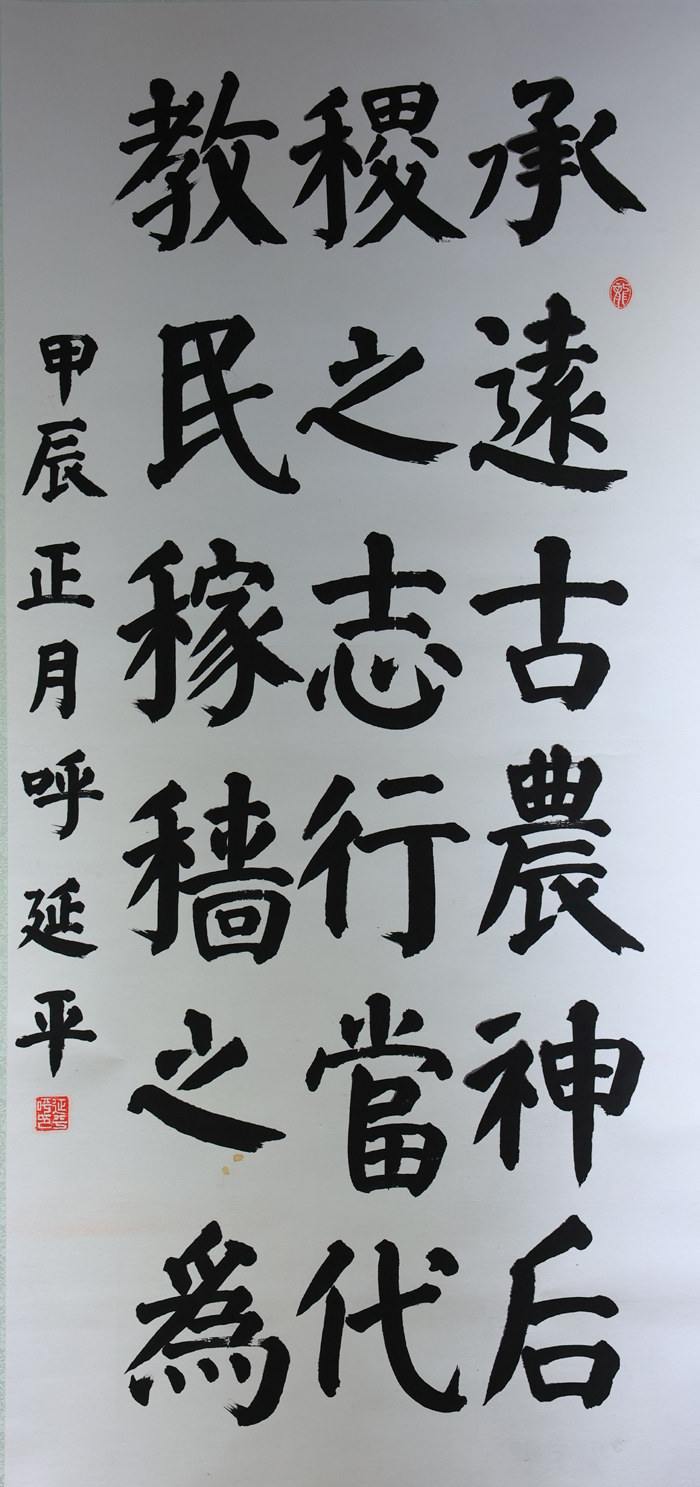 承遠古農神后
稷之志行當代
教民稼穡之為
甲辰正月呼延平
龍